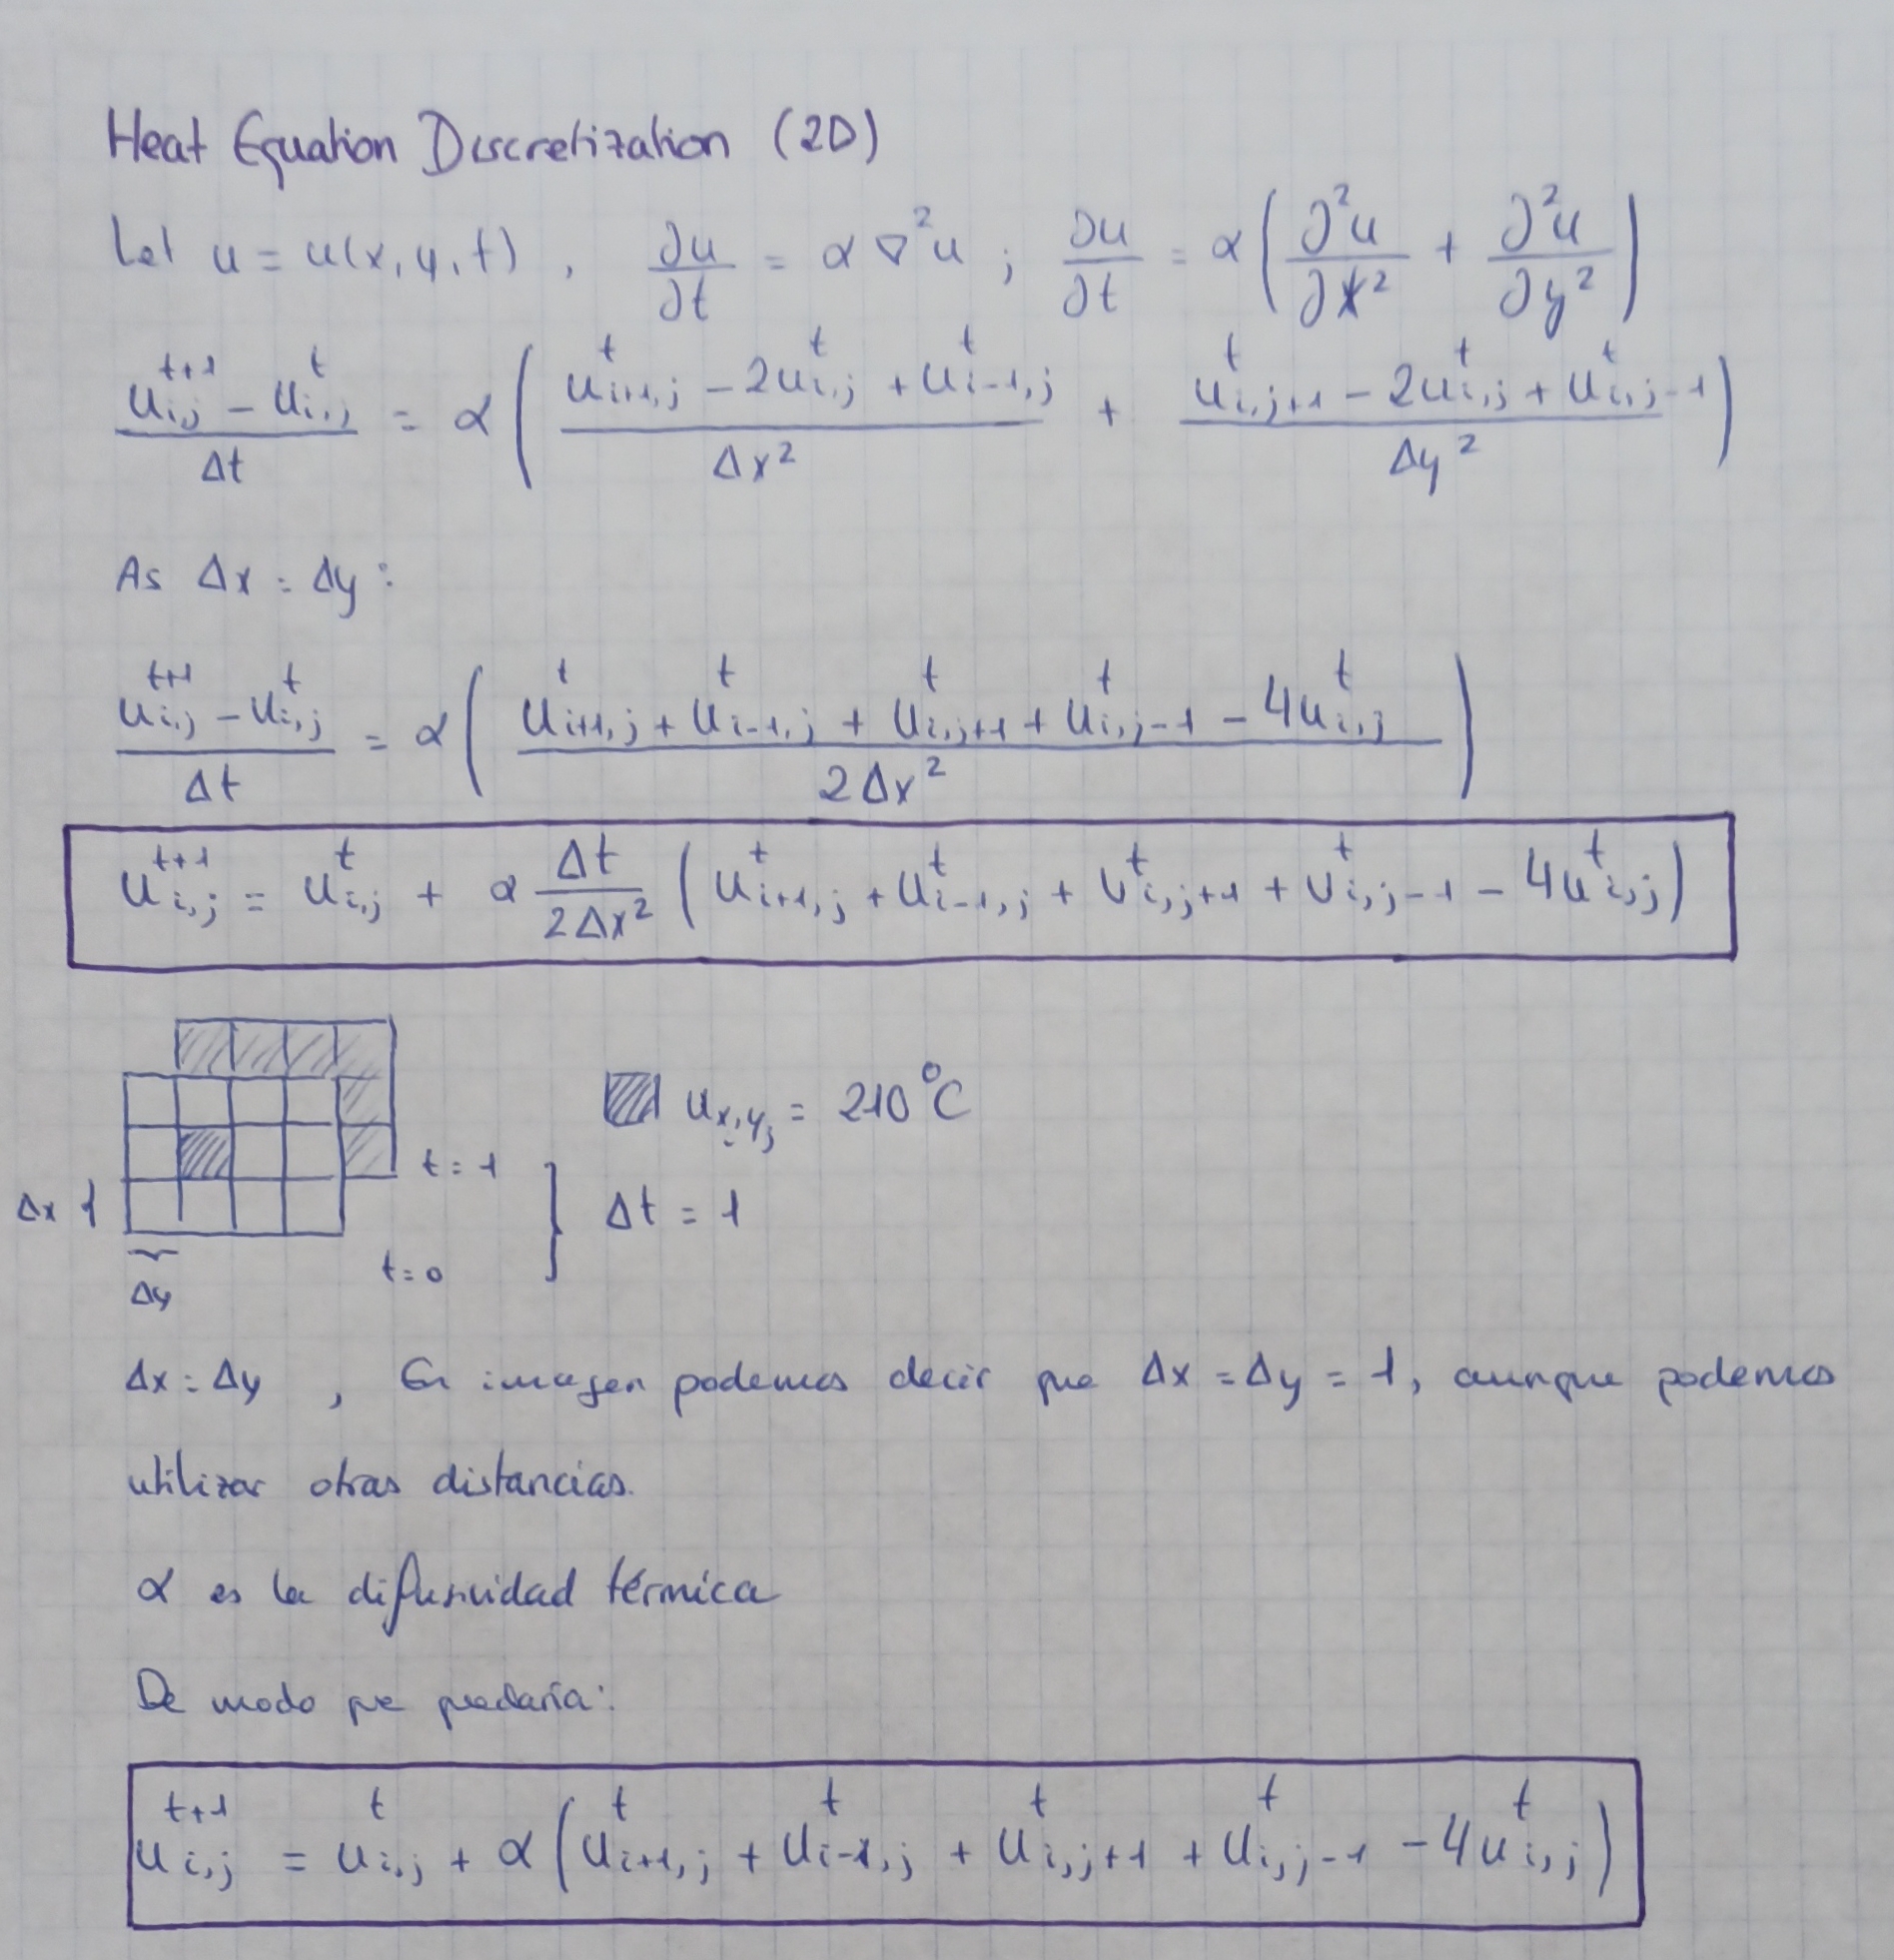 Heat Equation Discretization (2D)
Let u = u(x, y, t) , ∂u/∂t = α ∇²u ; ∂u/∂t = α(∂²u/∂x² + ∂²u/∂y²)
(u_{i,j}^{t+1} - u_{i,j}^{t})/Δt = α((u_{i+1,j}^{t} - 2u_{i,j}^{t} + u_{i-1,j}^{t})/Δx² + (u_{i,j+1}^{t} - 2u_{i,j}^{t} + u_{i,j-1}^{t})/Δy²)
As Δx = Δy :
(u_{i,j}^{t+1} - u_{i,j}^{t})/Δt = α((u_{i+1,j}^{t} + u_{i-1,j}^{t} + u_{i,j+1}^{t} + u_{i,j-1}^{t} - 4u_{i,j}^{t})/2Δx²)
u_{i,j}^{t+1} = u_{i,j}^{t} + α Δt/2Δx² (u_{i+1,j}^{t} + u_{i-1,j}^{t} + u_{i,j+1}^{t} + u_{i,j-1}^{t} - 4u_{i,j}^{t})
u_{x_i,y_j} = 210 °C
t = 1
Δx
Δt = 1
t = 0
Δy
Δx = Δy , En imagen podemos decir que Δx = Δy = 1, aunque podemos
utilizar otras distancias.
α es la difusividad térmica
De modo que quedaría:
u_{i,j}^{t+1} = u_{i,j}^{t} + α(u_{i+1,j}^{t} + u_{i-1,j}^{t} + u_{i,j+1}^{t} + u_{i,j-1}^{t} - 4u_{i,j}^{t})